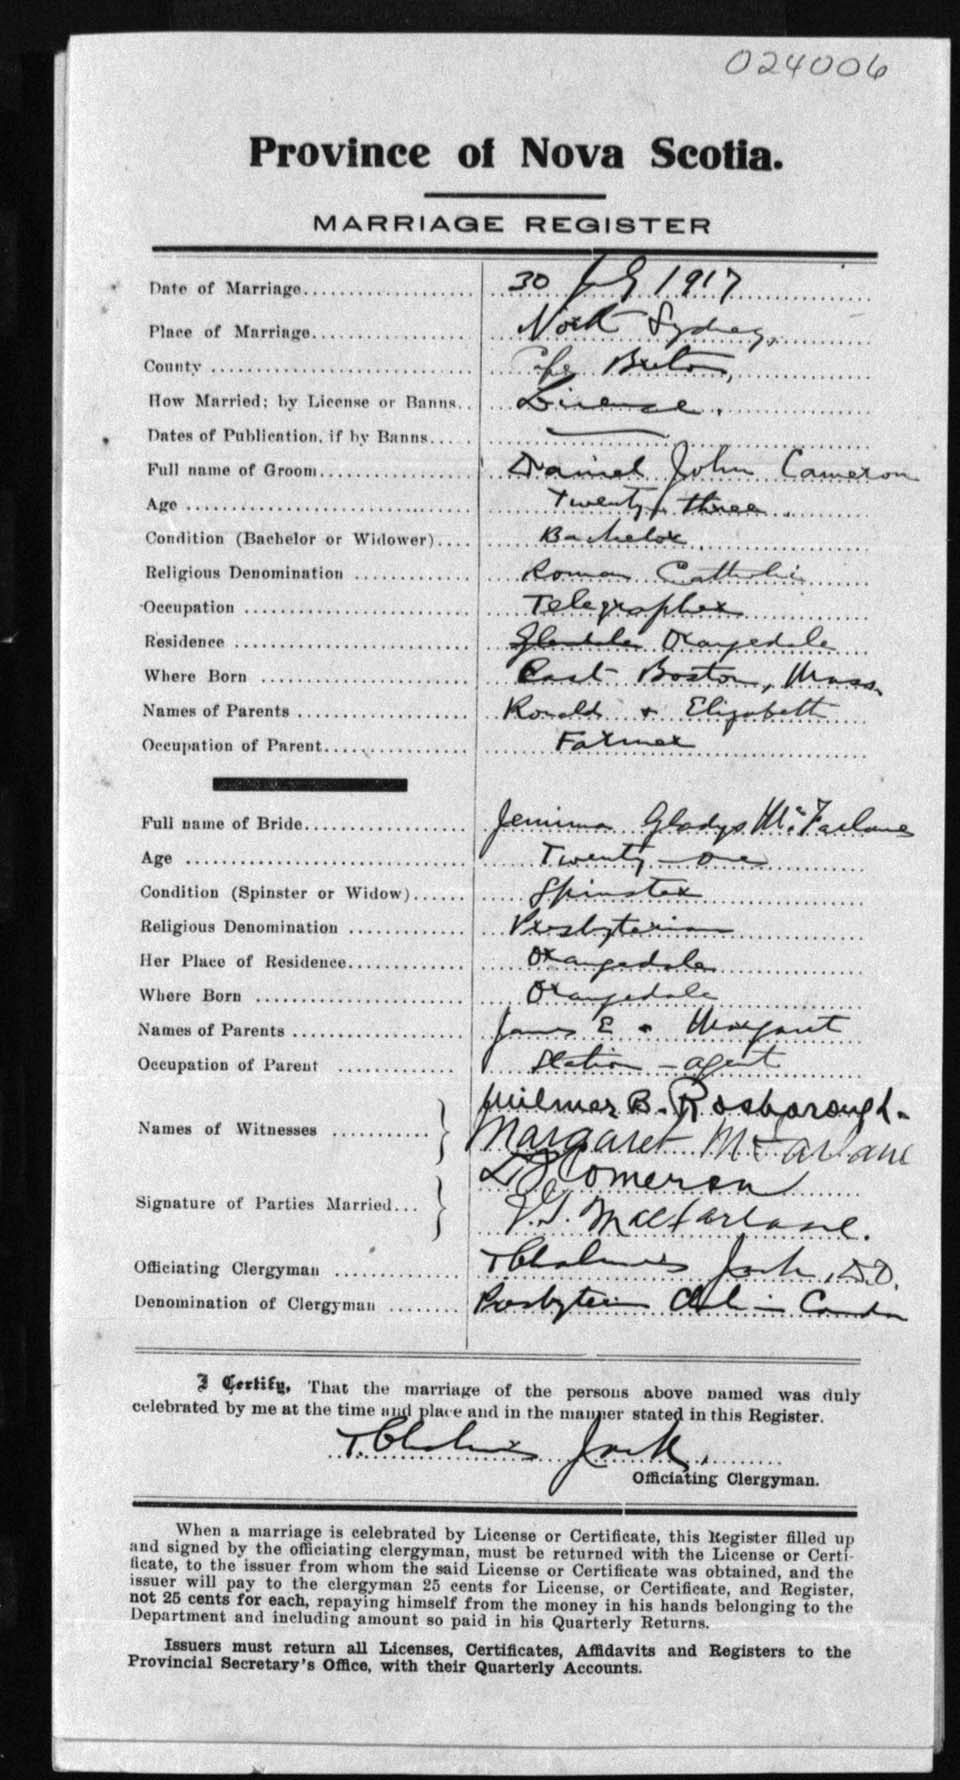 024006
Province of Nova Scotia.
MARRIAGE REGISTER
Date of Marriage 30 July 1917
Place of Marriage North Sydney,
County Cape Breton,
How Married; by License or Banns License.
Dates of Publication, if by Banns
Full name of Groom Daniel John Cameron
Age Twenty three
Condition (Bachelor or Widower) Bachelor
Religious Denomination Roman Catholic
Occupation Telegrapher
Residence Orangedale
Where Born East Boston, Mass.
Names of Parents Ronald + Elizabeth
Occupation of Parent Farmer
Full name of Bride Jemima Gladys McFarlane
Age Twenty-one
Condition (Spinster or Widow) Spinster
Religious Denomination Presbyterian
Her Place of Residence Orangedale
Where Born Orangedale
Names of Parents James E + Margaret
Occupation of Parent Station-agent
Wilmer B. Rosborough.
Names of Witnesses Margaret McFarlane
D J Cameron
Signature of Parties Married J. G. MacFarlane.
Officiating Clergyman T Chalmers Jack, D.D.
Denomination of Clergyman Presbyterian Church in Canada
I Certify, That the marriage of the persons above named was duly
celebrated by me at the time and place and in the manner stated in this Register.
T. Chalmers Jack.
Officiating Clergyman.
When a marriage is celebrated by License or Certificate, this Register filled up
and signed by the officiating clergyman, must be returned with the License or Certi-
ficate, to the issuer from whom the said License or Certificate was obtained, and the
issuer will pay to the clergyman 25 cents for License, or Certificate, and Register,
not 25 cents for each, repaying himself from the money in his hands belonging to the
Department and including amount so paid in his Quarterly Returns.
Issuers must return all Licenses, Certificates, Affidavits and Registers to the
Provincial Secretary's Office, with their Quarterly Accounts.